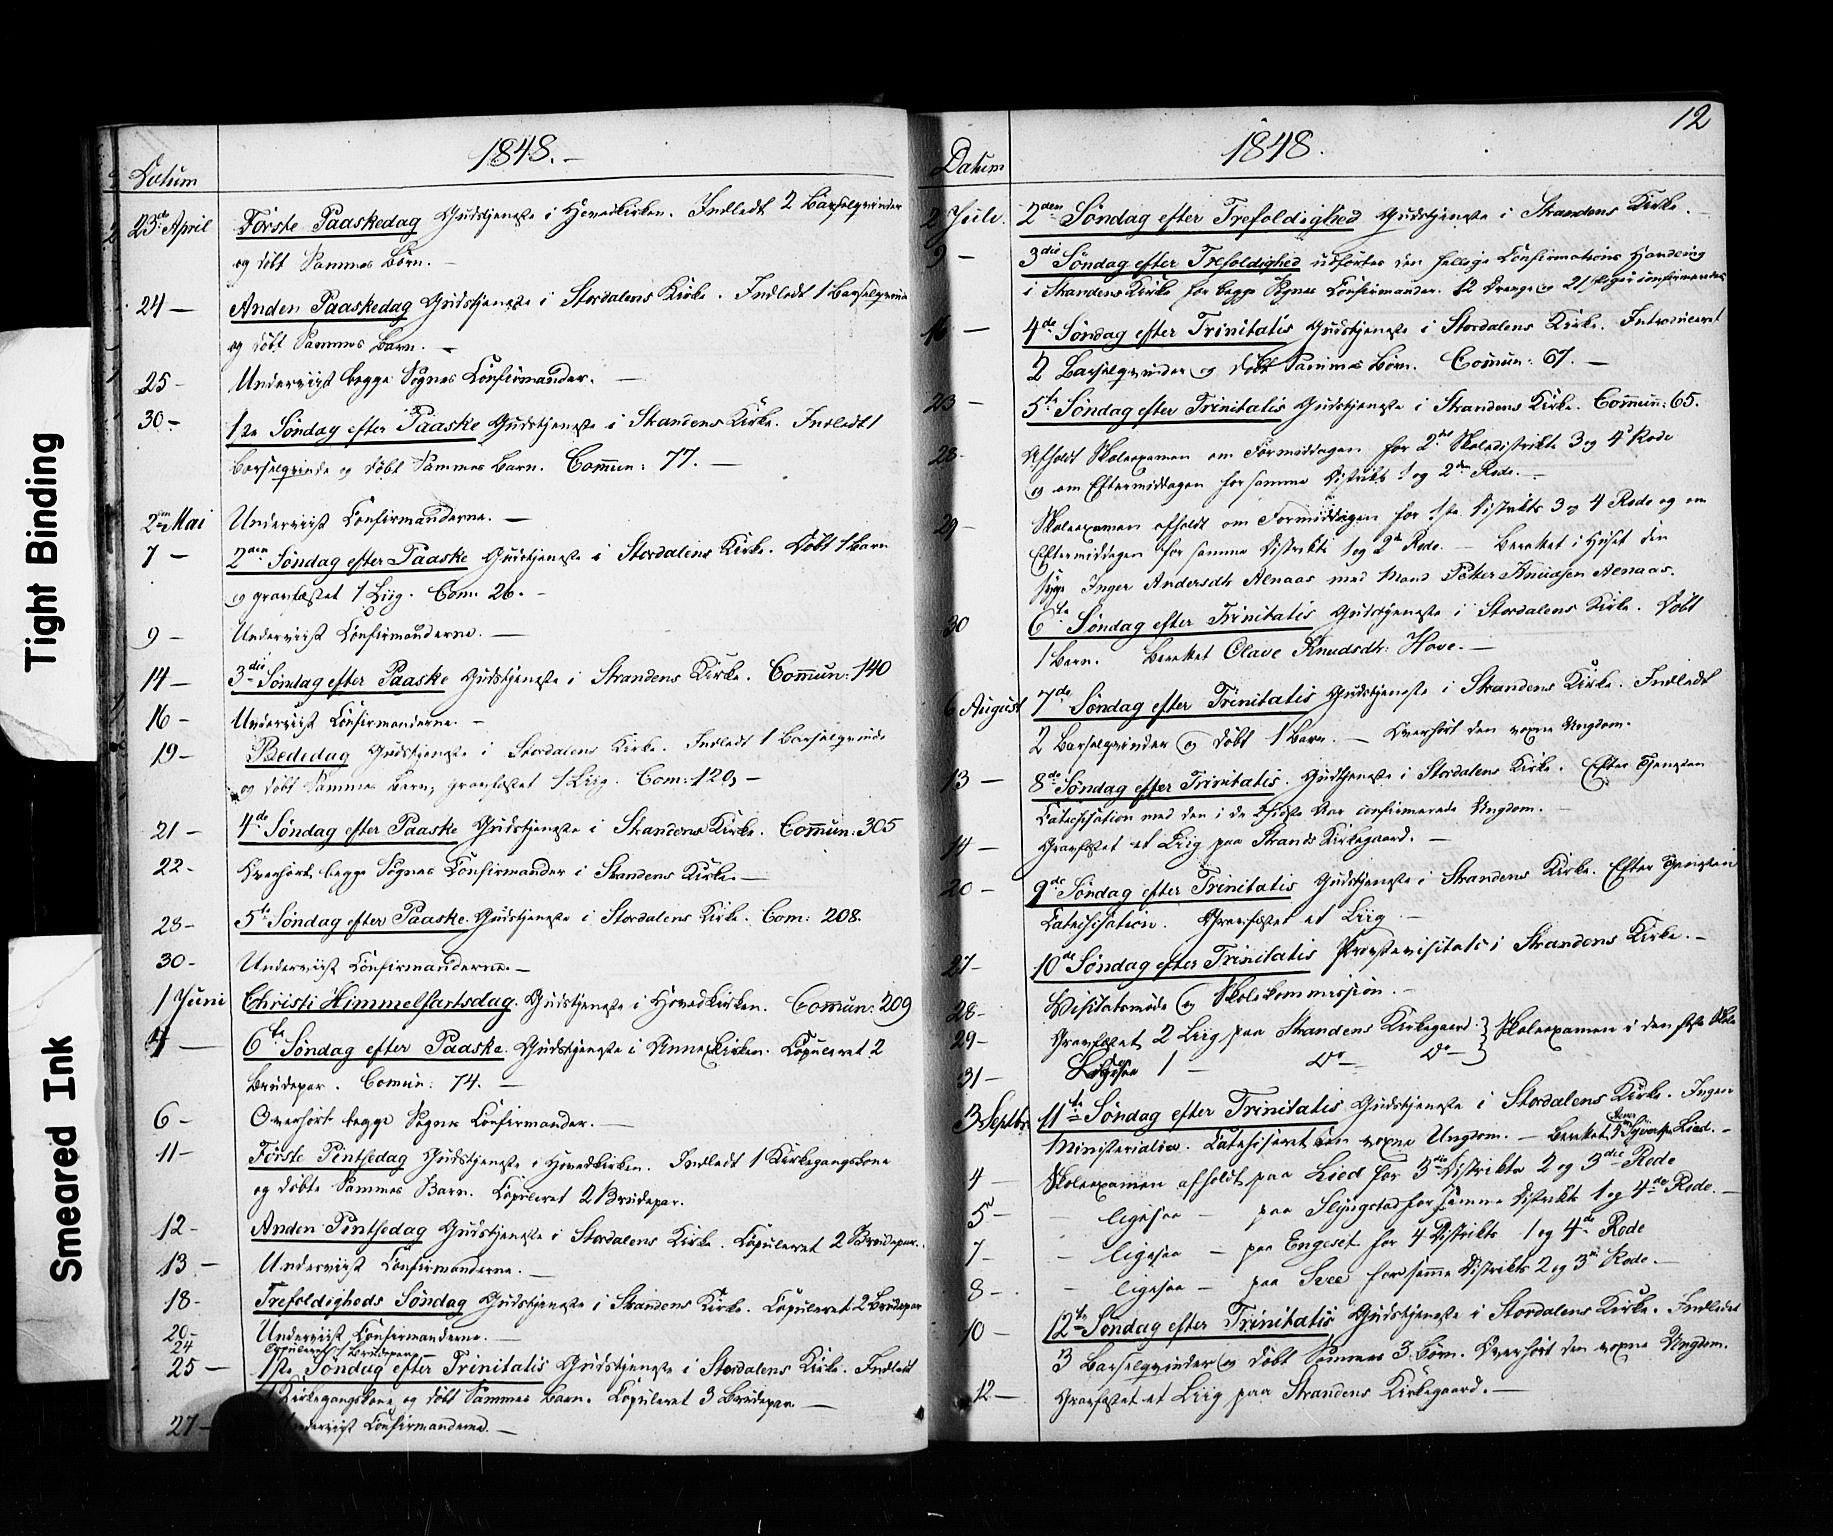 Tight Binding
Smeared Ink
1848.
Datum
23de April Første Paaskedag Gudstjeneste i Hovedkirken. Indledt 2 Barselqvinder
og døbt Sammes Børn. —
24 — Anden Paaskedag Gudstjeneste i Stordalens Kirke. Indledt 1 Barselqvinde
og døbt Sammes Barn. —
25 — Underviist begge Sognes Confirmander. —
30 — 1ste Søndag efter Paaske Gudstjeneste i Strandens Kirke. Indledt 1
Barselqvinde og døbt Sammes Barn. Commun: 77. —
2den Mai Underviist Confirmanderne. —
7 — 2den Søndag efter Paaske Gudstjeneste i Stordalens Kirke. Døbt 1 Barn
og gravfæstet 1 Liig. Com: 26. —
9 — Underviist Confirmanderne. —
14 — 3die Søndag efter Paaske Gudstjeneste i Strandens Kirke. Commun: 140
16 — Underviist Confirmanderne. —
19 — Bededag Gudstjeneste i Stordalens Kirke. Indledt 1 Barselqvinde
og døbt Sammes Barn, gravfæstet 1 Liig. Com: 120, —
21 — 4de Søndag efter Paaske Gudstjeneste i Strandens Kirke. Commun: 305
22 — Overhørt begge Sognes Confirmander i Strandens Kirke. —
28 — 5te Søndag efter Paaske. Gudstjeneste i Stordalens Kirke. Com: 208.
30 — Underviist Confirmanderne. —
1 Juni Christi Himmelfartsdag. Gudstjeneste i Hovedkirken. Commun: 209
4 — 6te Søndag efter Paaske. Gudstjeneste i Annexkirken. Copuleret 2
Brudepar. Comun: 74. —
6 — Overhørt begge Sognes Confirmander. —
11 — Første Pintsedag Gudstjeneste i Hovedkirken. Indledt 1 Kirkegangskone
og døbte Sammes Barn. Copuleret 2 Brudepar.
12 — Anden Pintsedag Gudstjeneste i Stordalens Kirke. Copuleret 2 Brudepar.
13 — Underviist Confirmanderne. —
18 — Trefoldigheds Søndag Gudstjeneste i Strandens Kirke. Copuleret 2 Brudepar
20 — Underviist Confirmanderne. —
24 Copuleret 1 Brudepar —
25 — 1ste Søndag efter Trinitatis Gudstjeneste i Stordalens Kirke. Indledt
Kirkegangskone og døbt Sammes Barn. Copuleret 3 Brudepar —
27 — Underviist Confirmanderne. —
12
1848.
Datum
2 Juli. 2den Søndag efter Trefoldighed Gudstjeneste i Strandens Kirke. —
9 — 3die Søndag efter Trefoldighed udførtes den hellige Confirmations Handling
i Strandens Kirke for begge Sognes Confirmander. 12 Drenge og 21 Piger confirmeredes
16 — 4de Søndag efter Trinitatis Gudstjeneste i Stordalens Kirke. Introduceret
2 Barselqvinder og døbt Sammes Børn. Commun: 67. —
23 — 5te Søndag efter Trinitatis Gudstjeneste i Strandens Kirke. Commun: 65.
28 — Afholdt Skoleexamen om Formiddagen for 2det Skoledistrikts 3 og 4de Rode
og om Eftermiddagen for samme Distrikts 1 og 2den Rode. —
29 — Skoleexamen afholdt om Formiddagen for 1ste Distrikts 3 og 4 Rode og om
Eftermiddagen for samme Distrikts 1 og 2de Rode. — Berettet i Huset den
syge Inger Andersdtr Alnaas med Mand Petter Knudsen Alnaas.
30 6te Søndag efter Trinitatis Gudstjeneste i Stordalens Kirke. Døbt
1 Barn. Berettet Olave Knudsdtr: Hove. —
6 August 7de Søndag efter Trinitatis Gudstjeneste i Strandens Kirke. Indledt
2 Barselqvinder og døbt 1 Barn. — Overhørt den voxne Ungdom.
13 — 8de Søndag efter Trinitatis. Gudstjeneste i Stordalens Kirke. Efter Tjenesten
Catechisation med den i de 2 sidste Aar confirmerede Ungdom. —
14 — Gravfæstet et Liig paa Strands Kirkegaard. —
20 — 9de Søndag efter Trinitatis Gudstjeneste i Strandens Kirke. Efter Tjenesten
Catechisation. Gravfæstet et Liig. —
27 — 10de Søndag efter Trinitatis Provstevisitats i Strandens Kirke. —
28 — Visitatsmøde og Skolekommission. —
29 — Gravfæstet 2 Liig paa Strandens Kirkegaard } Skoleexamen i den faste Skole
31 — Ligesaa 1 — Do — Do —
3 Septbr. 11te Søndag efter Trinitatis Gudstjeneste i Stordalens Kirke. Ingen
Ministerialia. Catechiseret den voxne Ungdom. — Berettet Syverts: Lied. —
4 — Skoleexamen afholdt paa Lied for 3die Distrikts 2 og 3die Rode
5 — — ligesaa — paa Slyngstad for samme Distrikts 1 og 4de Rode. —
7 — — ligesaa — paa Engeset for 4 Distrikts 1 og 4de Rode
8 — — ligesaa — paa Svee for samme Distrikts 2 og 3die Rode. —
10 — 12te Søndag efter Trinitatis Gudstjeneste i Stordalens Kirke. Indledet
3 Barselqvinder og døbt Sammes 3 Børn. Overhørt den voxne Ungdom.
12 — Gravfæstet et Liig paa Strandens Kirkegaard. —